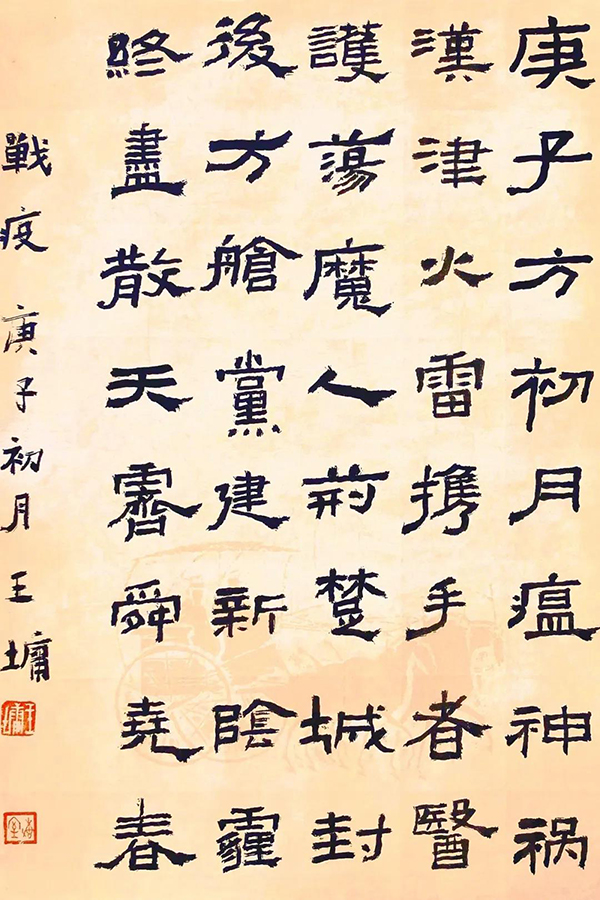 庚子方初月瘟神祸
漢津火雷攜手者醫
護蕩魔人荊楚城封
後方艙黨建新陰霾
終盡散天霽舜堯春
戰疫 庚子初月 王墉
王墉